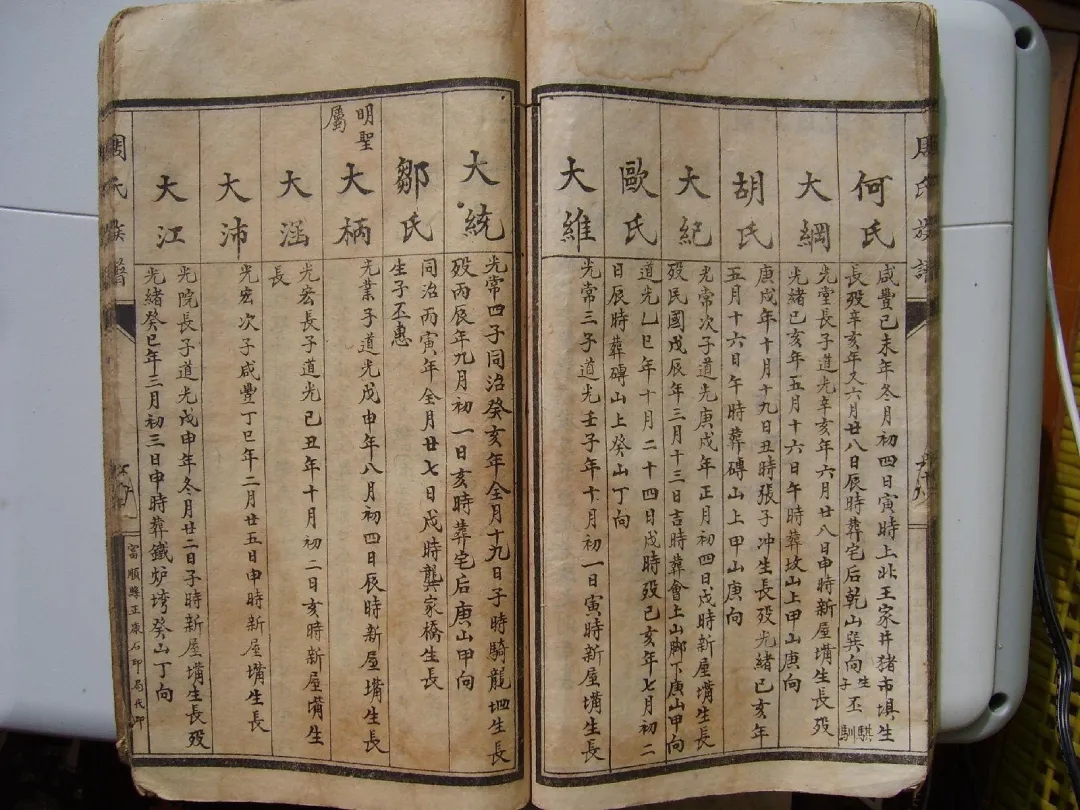 周氏族譜
何氏
咸豐己未年冬月初四日寅時上北王家井猪市埧生
長殁辛亥年又六月廿八日辰時葬宅后乾山巽向生子丕騏馴
大綱
光堂長子道光辛亥年六月廿八日申時新屋墕生長殁
光緒己亥年五月十六日午時葬坟山上甲山庚向
胡氏
庚戌年十月十九日丑時張子冲生長殁光緒己亥年
五月十六日午時葬磚山上甲山庚向
大紀
光常次子道光庚戌年正月初四日戌時新屋墕生長
殁民國戊辰年三月十三日吉時葬會上山脚下庚山甲向
歐氏
道光乙巳年十月二十四日戌時殁己亥年七月初二
日辰時葬磚山上癸山丁向
大維
光常三子道光壬子年十月初一日寅時新屋墕生長
大統
光常四子同治癸亥年全月十九日子時騎龍坳生長
殁丙辰年九月初一日亥時葬宅后庚山甲向
鄒氏
同治丙寅年全月廿七日戌時龔家橋生長
生子丕惠
明聖
屬
大柄
光業子道光戊申年八月初四日辰時新屋墕生長
大滛
光宏長子道光己丑年十月初二日亥時新屋墕生
長
大沛
光宏次子咸豐丁巳年二月廿五日申時新屋墕生長
大江
光院長子道光戊申年冬月廿二日子時新屋墕生長殁
光緒癸巳年三月初三日申時葬鐵炉塆癸山丁向
周氏族譜
富順縣正康石印局代印